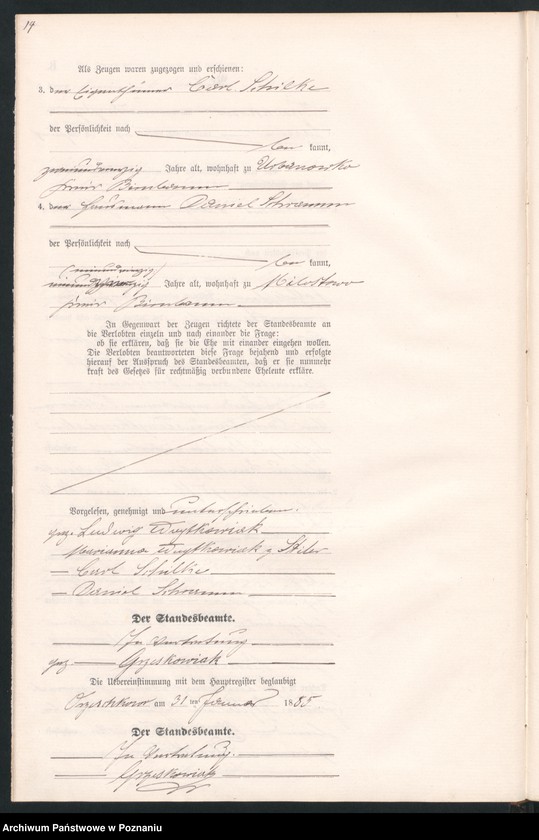 14
Als Zeugen waren zugezogen und erschienen:
3. der Eigenthümer Carl Schilke
der Persönlichkeit nach
be kannt,
Jahre alt, wohnhaft zu Urbanowko
Kreis Birnbaum
4. der Hausmann Daniel Schramm
der Persönlichkeit nach
be kannt,
Jahre alt, wohnhaft zu Milostowo
Kreis Birnbaum
In Gegenwart der Zeugen richtete der Standesbeamte an
die Verlobten einzeln und nach einander die Frage:
ob sie erklären, daß sie die Ehe mit einander eingehen wollen.
Die Verlobten beantworteten diese Frage bejahend und erfolgte
hierauf der Ausspruch des Standesbeamten, daß er sie nunmehr
kraft des Gesetzes für rechtmäßig verbundene Eheleute erkläre.
Vorgelesen, genehmigt und unterschrieben.
gez. Ludwig Woytkowiak
Marianna Woytkowiak g. Stiler
Carl Schilke
Daniel Schramm
Der Standesbeamte.
In Vertretung
gez. Grzeskowiak
Die Uebereinstimmung mit dem Hauptregister beglaubigt
Orzeschkowo am 31 ten Januar 1885.
Der Standesbeamte.
In Vertretung.
Grzeskowiak
Archiwum Państwowe w Poznaniu